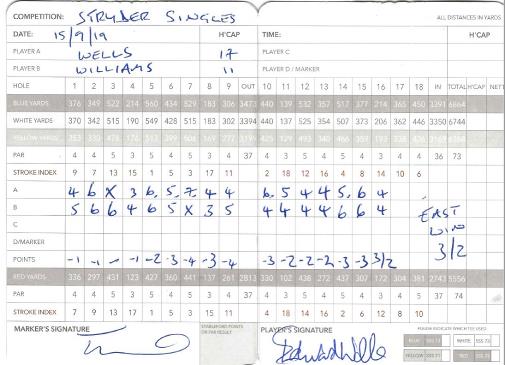 COMPETITION: STRYDER SINGLES ALL DISTANCES IN YARDS
DATE: 15/9/19 H'CAP TIME: H'CAP
PLAYER A WELLS 17 PLAYER C
PLAYER B WILLIAMS 11 PLAYER D / MARKER
HOLE 1 2 3 4 5 6 7 8 9 OUT 10 11 12 13 14 15 16 17 18 IN TOTAL H'CAP NETT
BLUE YARDS 376 349 522 214 560 434 529 183 306 3473 440 139 532 351 517 377 214 365 450 3391 6864
WHITE YARDS 370 342 515 190 549 428 515 183 302 3394 440 137 525 354 507 373 206 362 446 3350 6744
YELLOW YARDS 353 330 478 399 504 169 277 425 129 493 340 466 357 193 338
PAR 4 4 5 3 5 4 5 3 4 37 4 3 5 4 5 4 3 4 4 36 73
STROKE INDEX 9 7 13 15 1 5 3 17 11 2 18 12 16 4 8 14 10 6
A 4 6 X 3 6 5 7 4 4 6 5 4 4 5 6 4
B 5 6 6 4 6 5 X 3 5 4 4 4 4 6 6 4
C
D/MARKER
POINTS -1 -1 - -1 -2 -3 -4 -3 -4 -3 -2 -2 -2 -3 -3 3/2
WIN
3/2
RED YARDS 336 297 431 123 427 360 441 137 261 2813 330 102 438 272 437 307 172 304 381 2743 5556
PAR 4 4 5 3 5 4 5 3 4 37 4 3 5 4 5 4 3 4 5 37 74
STROKE INDEX 7 9 13 17 1 5 3 15 11 4 18 14 16 2 6 12 8 10
MARKER'S SIGNATURE STABLEFORD POINTS OR PAR RESULT PLAYER'S SIGNATURE PLEASE INDICATE WHICH TEE USED
BLUE SSS 73 WHITE SSS 73
YELLOW SSS 71 RED SSS 73